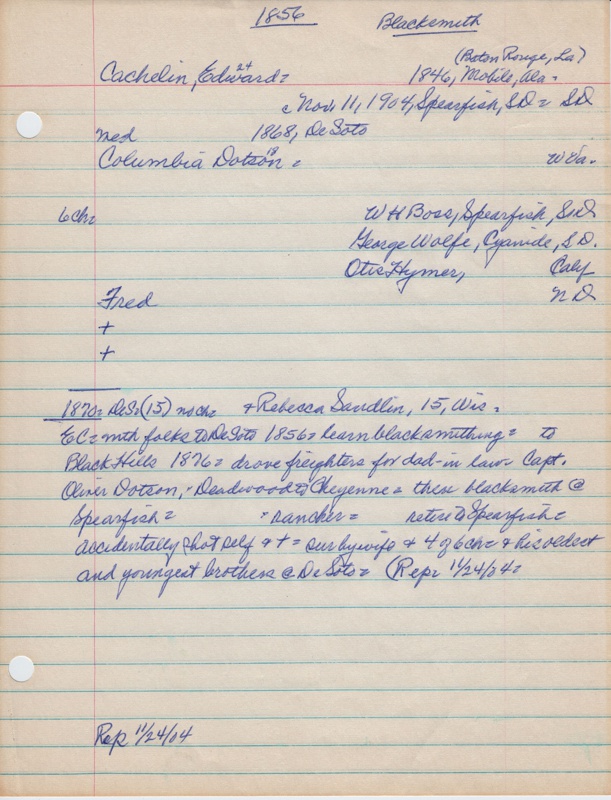 1856 Blacksmith
(Baton Rouge, La)
Cachelin, Edward 24 = 1846, Mobile, Ala =
c Nov. 11, 1904, Spearfish, SD = SD
med 1868, DeSoto
Columbia Dotson 18 = W Va.
6 ch = W H Boss, Spearfish, S.D.
George Wolfe, Cyanide, S.D.
Otis Hymer, Calif
Fred N D
+
+
1870 = DeSo (15) no ch = + Rebecca Sandlin, 15, Wis =
EC = with folks to DeSoto 1856 = learn blacksmithing = to
Black Hills 1876 = drove freighters for dad-in law = Capt.
Oliver Dotson, " Deadwood to Cheyenne = then blacksmith @
Spearfish = " rancher = retire to Spearfish =
accidentally shot self & + = sur by wife & 4 of 6 ch = & his oldest
and youngest brothers @ DeSoto = (Rep = 11/24/04 =
Rep 11/24/04